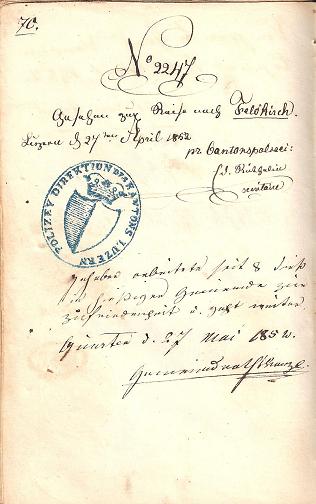 70.
No 2247
Gesehen zur Reise nach Feldkirch.
Luzern d 27ten April 1852
pr Cantonspolizei:
POLIZEY DIREKTION DES KANTONS LUZERN
Inhaber arbeitete seit 8
in hiesiger Gemeinde zur
Zufriedenheit u. geht weiter
d. 27 Mai 1852.